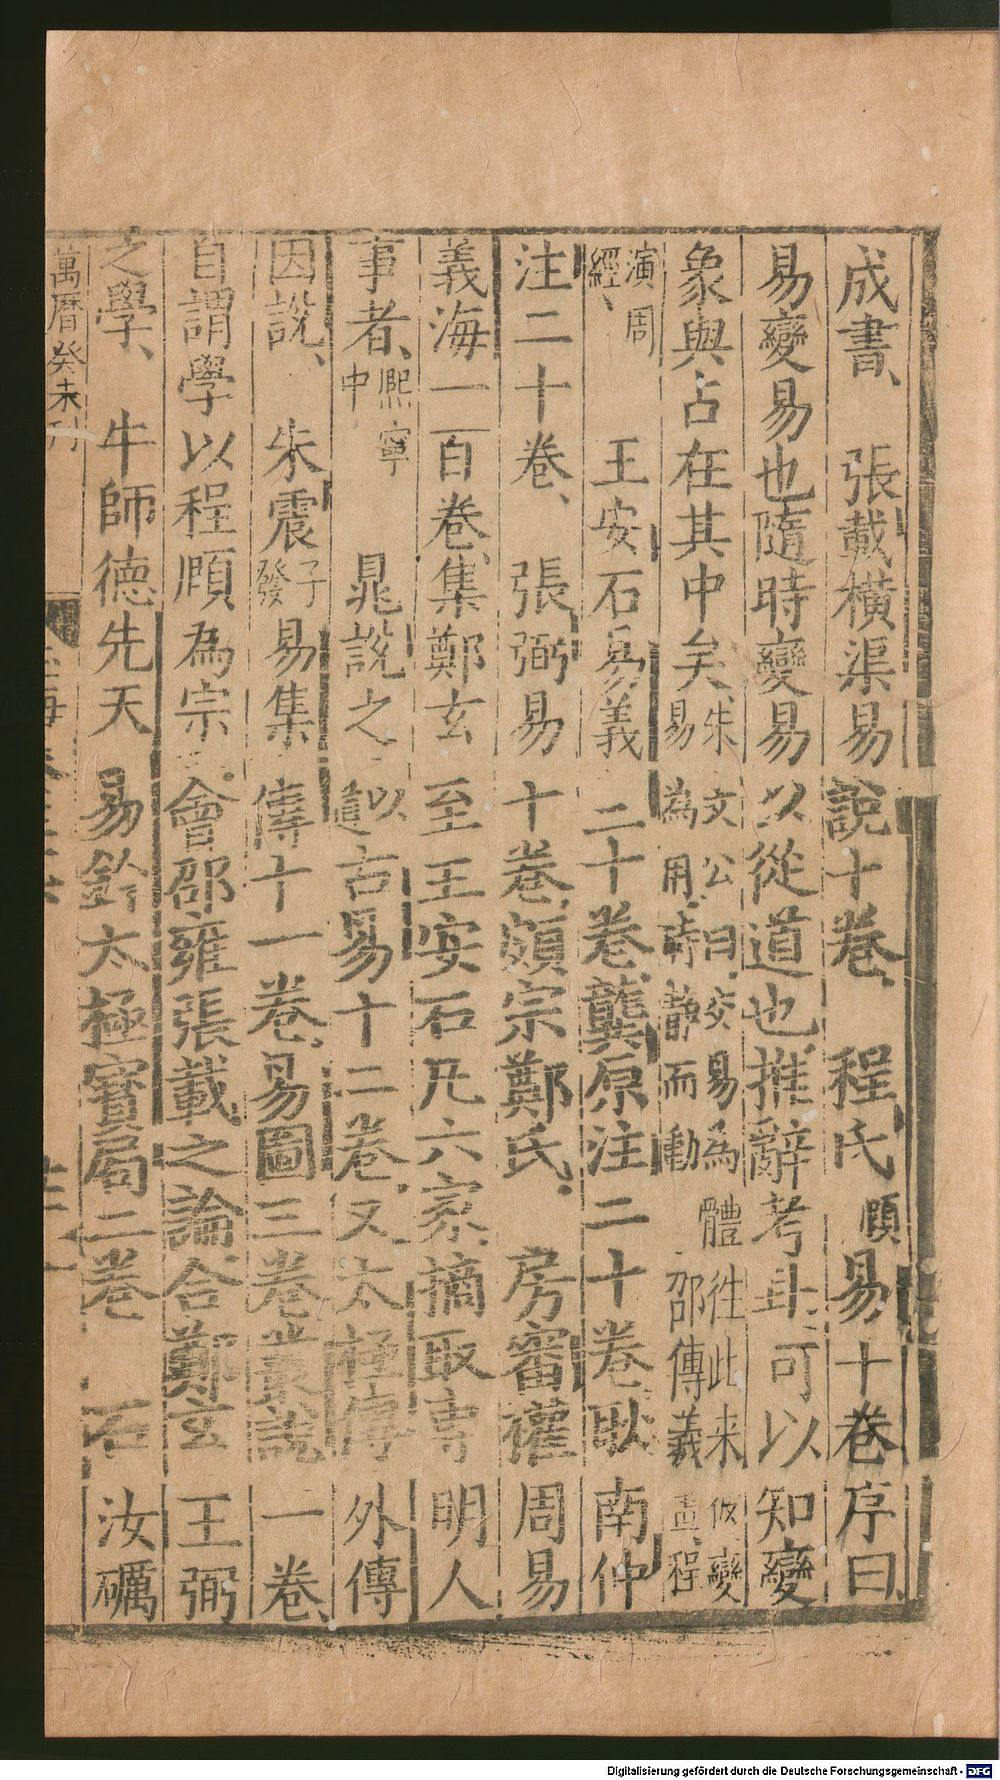 成書、　張戴橫渠易說十卷、　程氏頤易十卷序曰、
易變易也隨時變易以從道也推辭考卦、可以知變
象與占在其中矣、朱文公曰、交易為體徃此来彼變易為用、時靜而動邵傳羲畫、程
演周經、　王安石易義二十卷龔原注二十卷耿南仲
注二十卷、　張弼易十卷、頗宗鄭氏、　房審權周易
義海一百卷、集鄭玄至王安石凡六家摘取専明人
事者、熙寧中　晁說之以道古易十二卷、又太極傳外傳
因說、　朱震子發易集傳十一卷、易圖三卷叢說一卷、
自謂學以程頤為宗、會邵雍張載之論合鄭玄王弼
之學、　牛師德先天易鈐太極寳局二卷　石汝礪
萬曆癸未刊
Digitalisierung gefördert durch die Deutsche Forschungsgemeinschaft - DFG